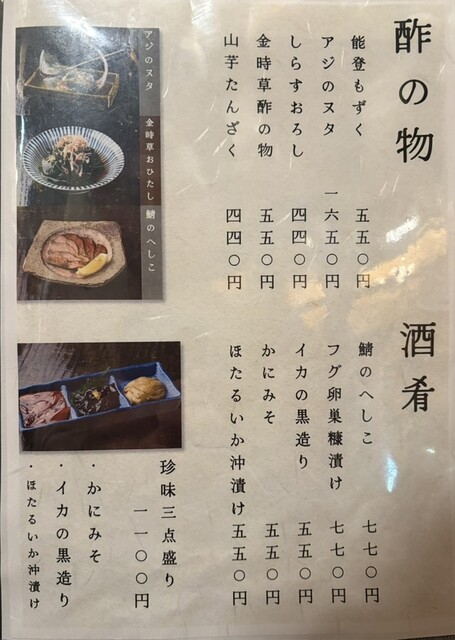 酢の物
能登もずく 五五〇円
アジのヌタ 一六五〇円
しらすおろし 四四〇円
金時草酢の物 五五〇円
山芋たんざく 四四〇円
アジのヌタ
金時草おひたし
鯖のへしこ
酒肴
鯖のへしこ 七七〇円
フグ卵巣糠漬け 七七〇円
イカの黒造り 五五〇円
かにみそ 五五〇円
ほたるいか沖漬け 五五〇円
珍味三点盛り
一一〇〇円
・かにみそ
・イカの黒造り
・ほたるいか沖漬け